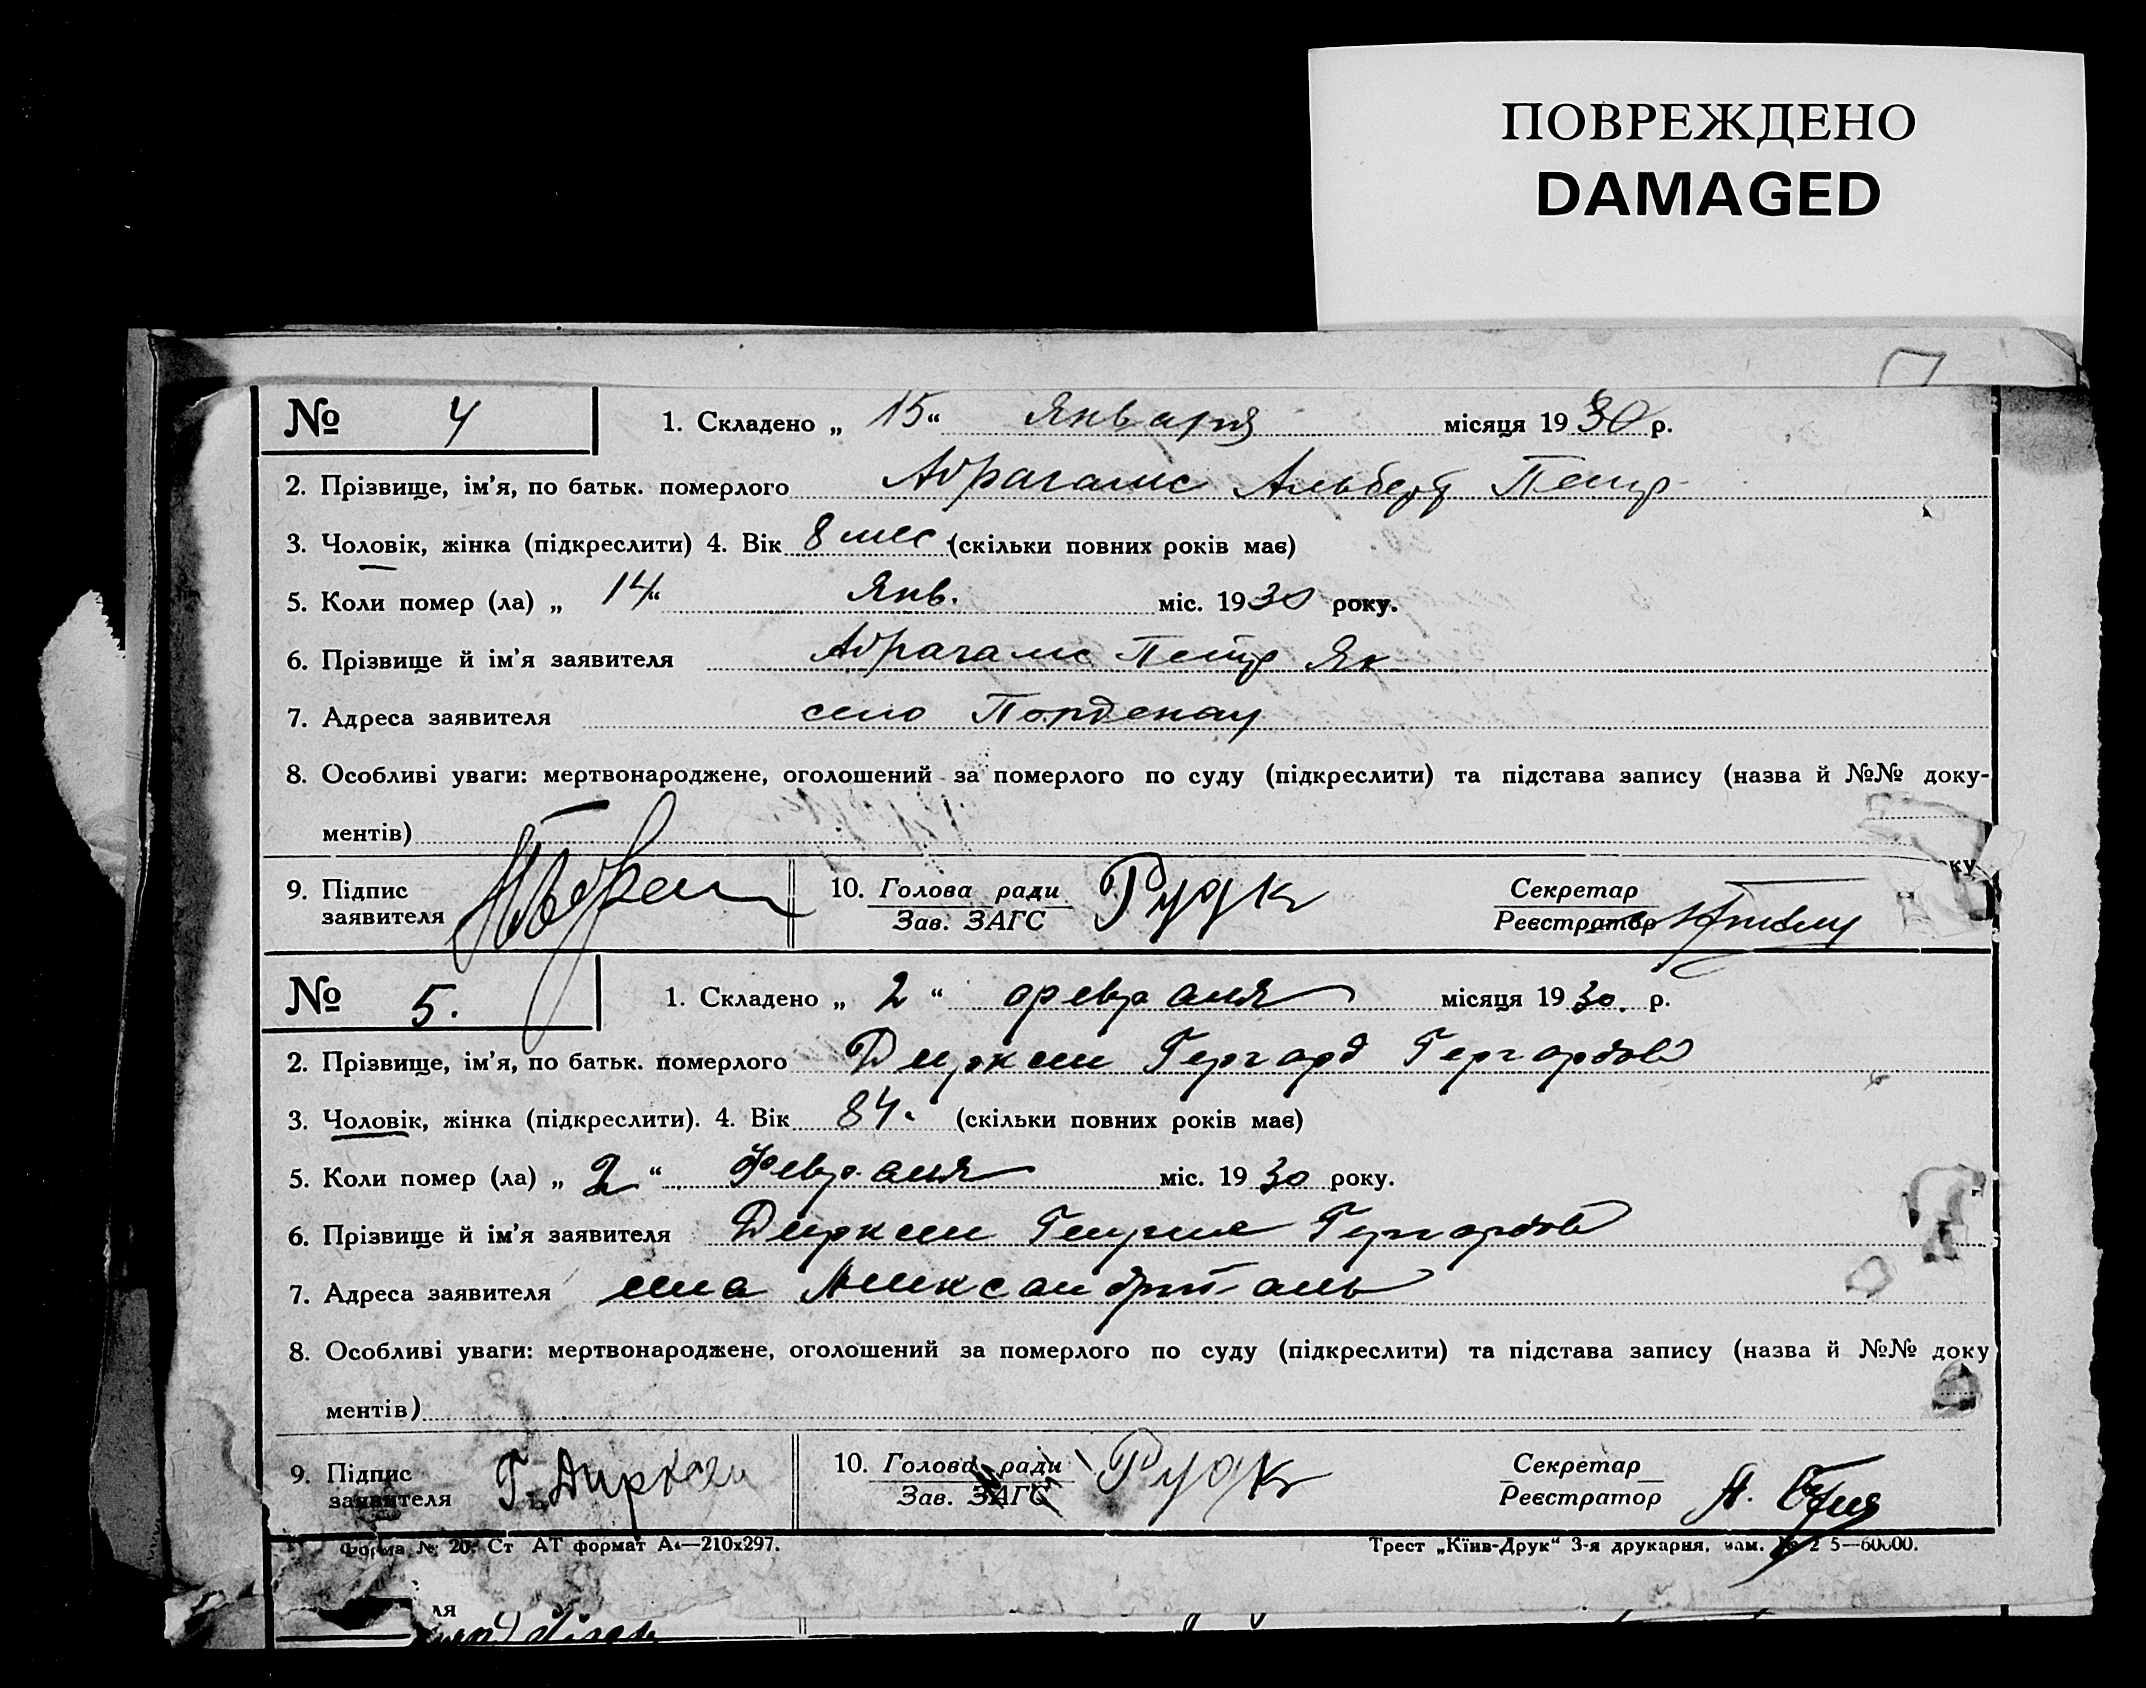 ПОВРЕЖДЕНО
DAMAGED
№ 4 1. Складено „ 15 “ Января місяця 1930 р.
2. Прізвище, ім'я, по батьк. померлого Абрагамс Альберт Петр
3. Чоловік, жінка (підкреслити) 4. Вік 8 мес (скільки повних років має)
5. Коли помер (ла) „ 14 “ Янв. міс. 1930 року.
6. Прізвище й ім'я заявителя Абрагамс Петр Як
7. Адреса заявителя село Порденау
8. Особливі уваги: мертвонароджене, оголошений за померлого по суду (підкреслити) та підстава запису (назва й №№ доку-
ментів)
ку
9. Підпис заявителя 10. Голова ради Зав. ЗАГС Рудк Секретар Реєстратор
№ 5. 1. Складено „ 2 “ февраля місяця 1930. р.
2. Прізвище, ім'я, по батьк. померлого Дирксен Гергард Гергардов
3. Чоловік, жінка (підкреслити). 4. Вік 84. (скільки повних років має)
5. Коли помер (ла) „ 2 “ Февраля міс. 1930 року.
6. Прізвище й ім'я заявителя Дирксен Гергардов
7. Адреса заявителя села Александрталь
8. Особливі уваги: мертвонароджене, оголошений за померлого по суду (підкреслити) та підстава запису (назва й №№ доку
ментів)
9. Підпис заявителя Г. Дирксен 10. Голова ради Зав. ЗАГС Рудк Секретар Реєстратор А.
Форма № 20. Ст АТ формат А4—210х297. Трест „Київ-Друк“ 3-я друкарня, зам. 5—60000.
ля